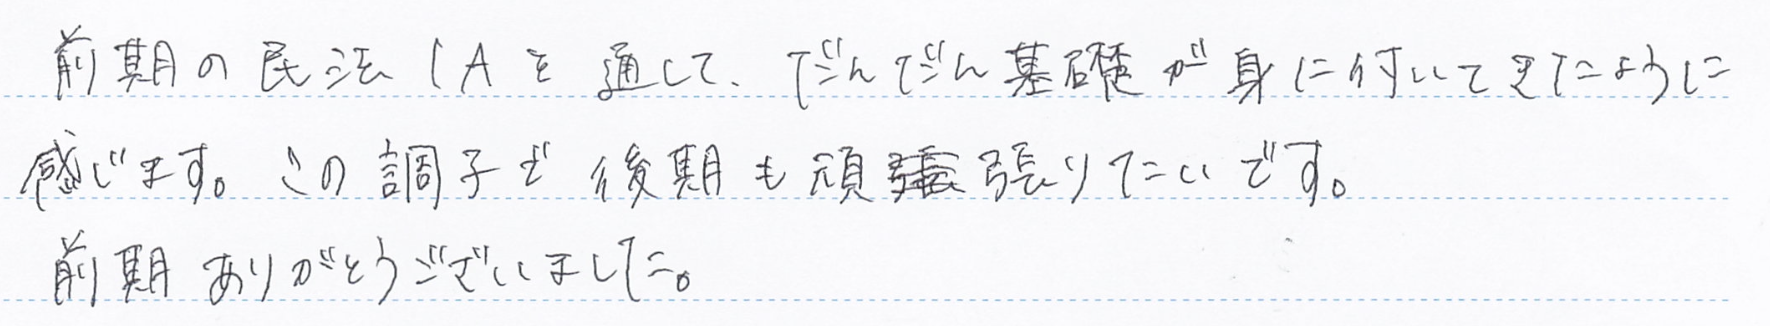 前期の民法1Aを通して、だんだん基礎が身に付いてきたように
感じます。この調子で後期も頑張りたいです。
前期ありがとうございました。